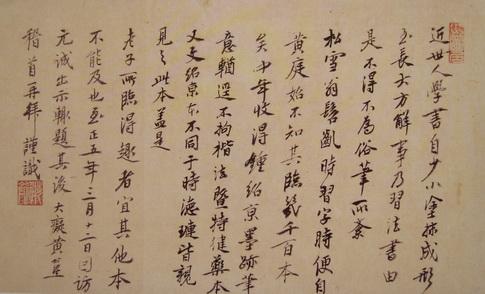 近世人學書自少小塗抹成形
至長大方解事乃習法書由
是不得不為俗筆所紊
松雪翁髫齔時習字時便自
黃庭始不知其臨幾千百本
矣中年收得鍾紹京墨跡筆
意輶逕不拘楷法暨特健藥本
又文紹京本不同于時德璉皆親
見之此本蓋是
老子所臨得趣者宜其他本
不能及也至正五年三月十二日因訪
元誠出示輒題其後大癡黃
稽首再拜謹識